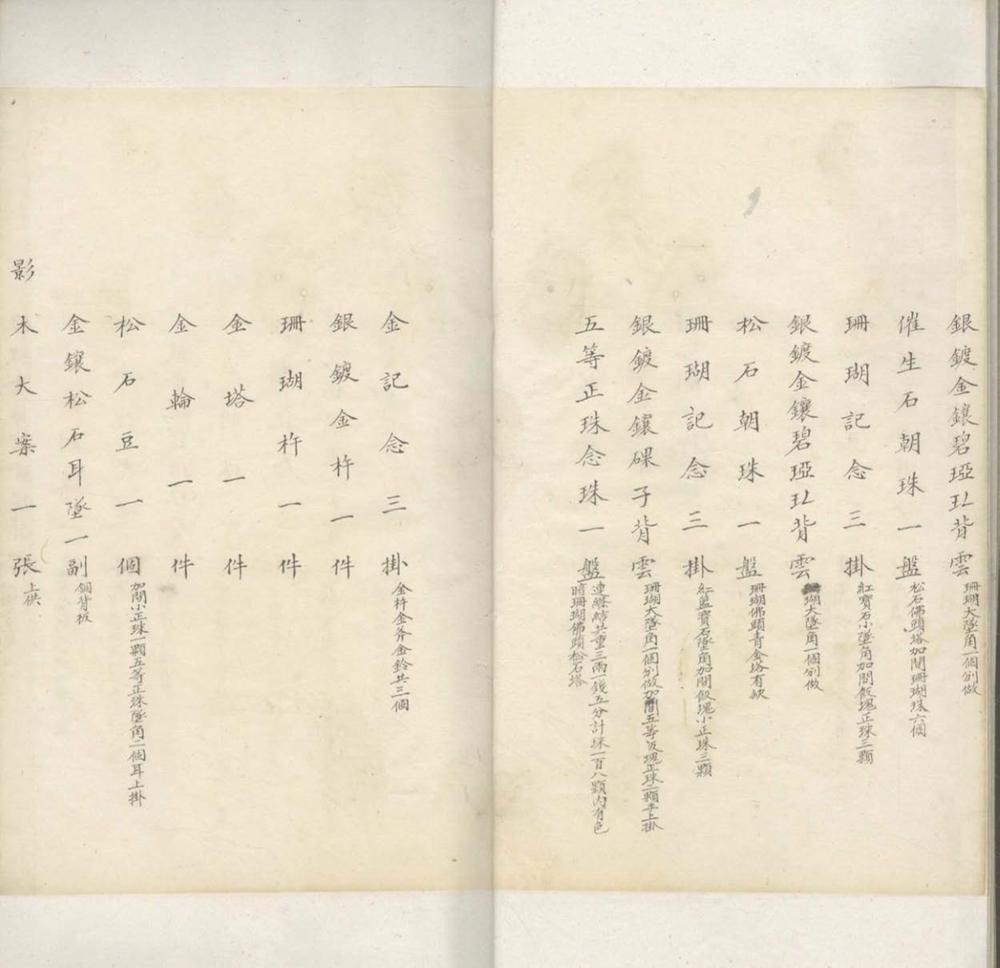 銀鍍金鑲碧琊𤣥背雲珊瑚大墜角一個別做
催生石朝珠一盤松石佛頭塔加間珊瑚珠六個
珊瑚記念三掛紅寶石小墜角加間飯塊正珠三顆
銀鍍金鑲碧琊背雲瑚大墜角一個別做
松石朝珠一盤珊瑚佛頭青金塔有缺
珊瑚記念三掛紅藍寶石墜角加間飯塊小正珠三顆
銀鍍金鑲碟子背雲珊瑚大墜角一個別做加間五等飯塊正珠二顆手上掛
五等正珠念珠一盤連絛結共重三兩一錢五分計珠一百八顆內有色
時珊瑚佛頭松石塔
金記念三掛金杵金斧金鈴共三個
銀鍍金杵一件
珊瑚杵一件
金塔一件
金輪一件
松石豆一個加間小正珠一顆五等正珠墜角二個耳上掛
金鑲松石耳墜一副銅背板
影木大案一張上供